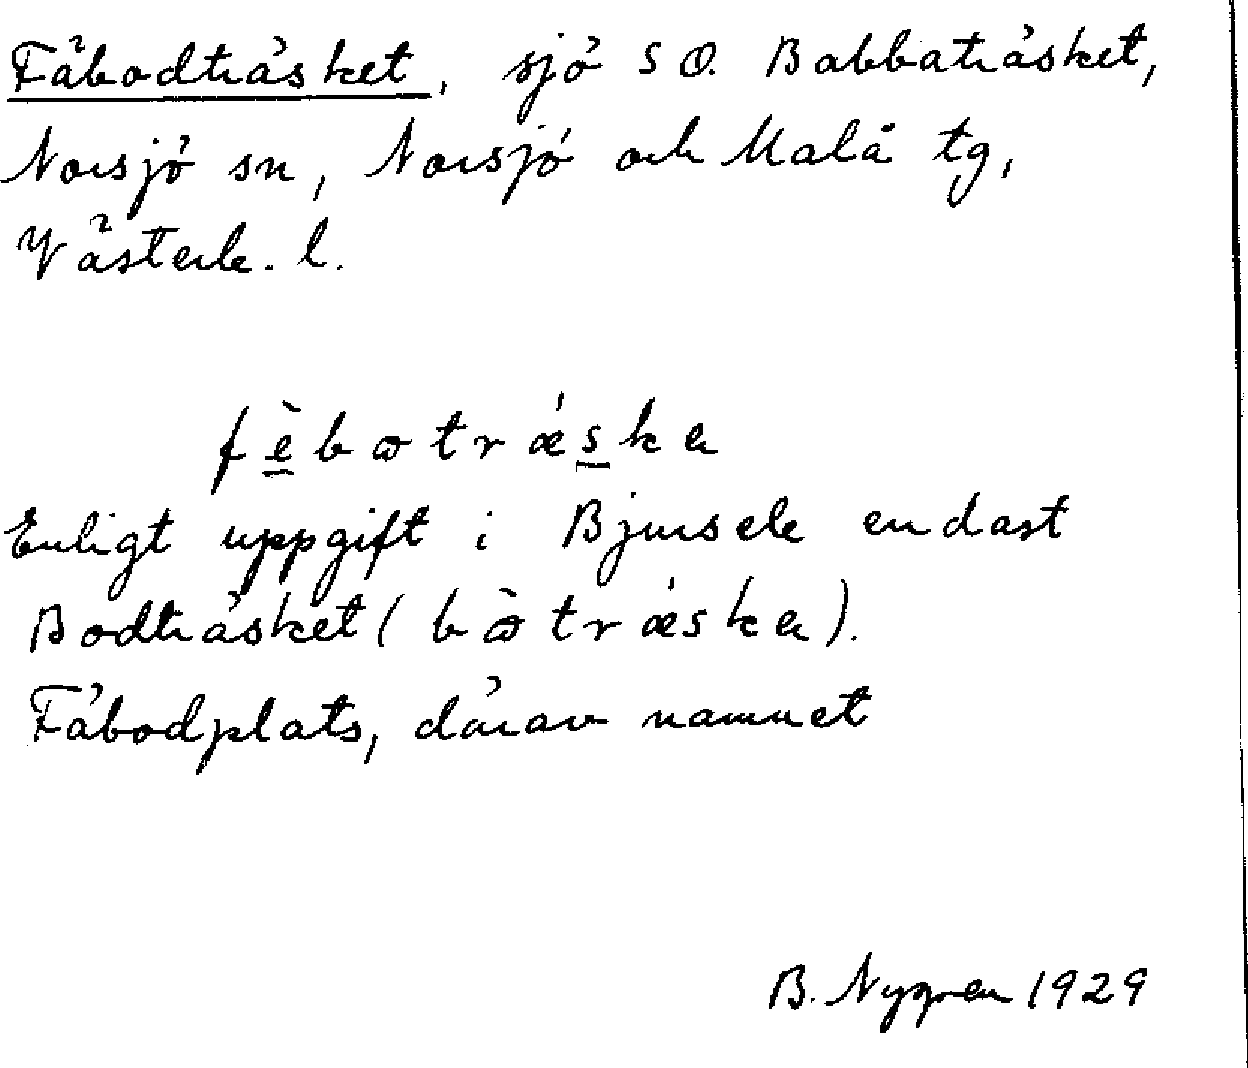 Fäbodträsket, sjö SO. Babbaträsket,
Norsjö sn, Norsjö och Malå tg,
Västerb. l.
fèbɷtrǽska
Enligt uppgift i Bjursele endast
Bodträsket (bɷ̀trǽska).
Fäbodplats, därav namnet
B. Nygren 1929